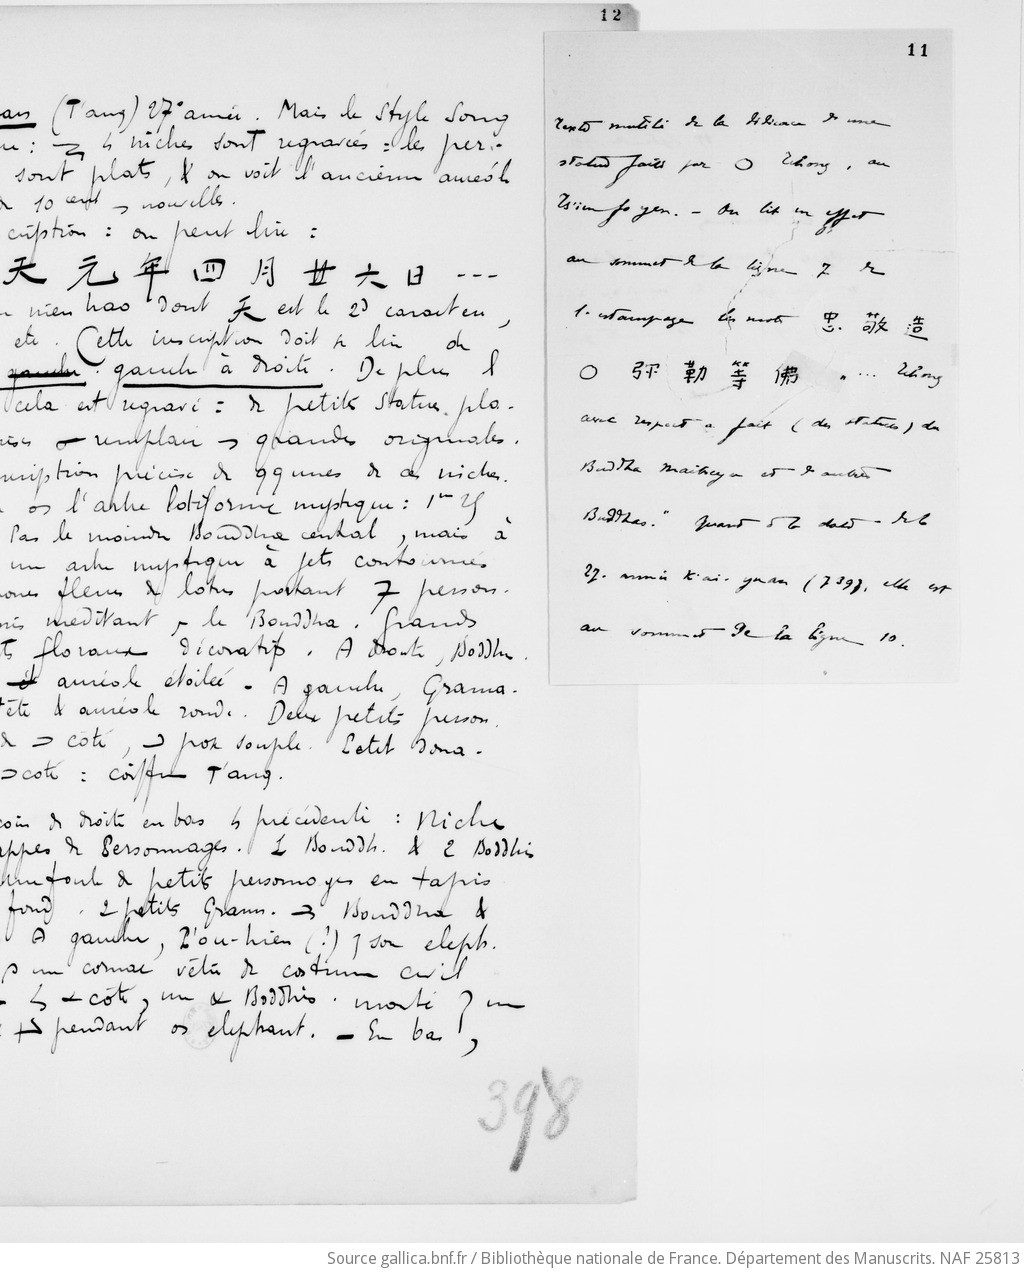 12
(T'ang) 27e année. Mais le style Song
: 4 niches sont regravées = les per-
sont plats, & on voit l'ancienne auréole
nouvelles.
cription : on peut lire :
天元年四月廿六日 ---
nien hao dont 天 est le 2d caractère,
etc. Cette inscription doit se lire de
gauche. gauche à droite. De plus
cela est regravé : de petites statues pla-
remplacer grandes originales.
cription précise de qqunes de ces niches.
l'arbre lotiforme mystique :
Pas le moindre Bouddha central, mais à
un arbre mystique à jets contournés
fleurs de lotus portant 7 person-
méditant le Bouddha. Grands
floraux décoratifs. A droite, Boddhi.
auréole étoilée - A gauche, Grama-
tête & auréole ronde. Deux petits person.
côté, pose souple. Petit dona-
côté : coiffure T'ang.
coin de droite en bas précédente : Niche
de Personnages. 1 Bouddh. & 2 Boddhis
foule de petits personnages en tapis
fond. 2 petits Gram. Bouddha &
A gauche, P'ou-hien (?) son eleph.
un cornac vêtu de costume civil
côté, un Boddhis. monté un
pendant elephant. - En bas,
398
11
Texte mutilé de la dédicace d'une
statue faite par O Tchong, au
Ts'ien fo yen. - On lit en effet
au sommet de la ligne 7 de
l'estampage les mots 忠敬造
O 弥勒等佛 „ ... Tchong
avec respect a fait (des statues) du
Buddha Maitreya et d'autres
Buddhas." Quant à la date de la
27e année K'ai-yuan (739), elle est
au sommet de la ligne 10.
Source gallica.bnf.fr / Bibliothèque nationale de France. Département des Manuscrits. NAF 25813